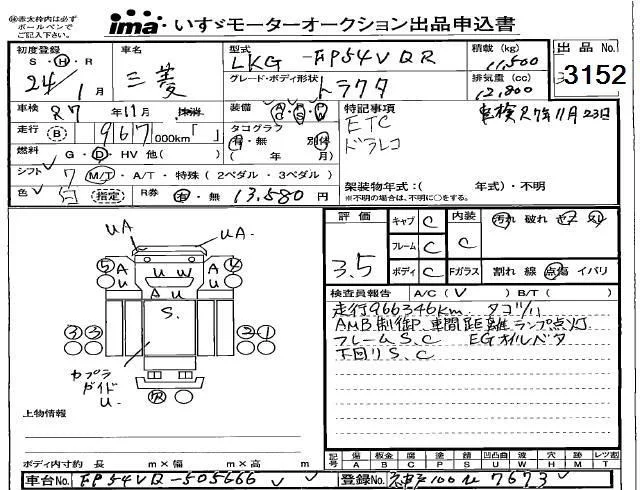 ㊟赤太枠内は必ず
ボールペンで
ご記入下さい。
ima・いすゞモーターオークション出品申込書
初度登録 車名 型式 積載(kg) 出品No.
S・H・R 三菱 LKG-FP54VQR 11,500
24/1月 グレード・ボディ形状 トラクタ 排気量(cc) 12,800 3152
車検 R7年11月 装備 特記事項 車検R7年11月23日
走行 B 967,000km「 」 タコグラフ ETC
有・無 別体 ドラレコ
燃料 G・D・HV 他( ) ( 年 月)
シフト 7 M/T・A/T・特殊(2ペダル・3ペダル) 架装物年式:( 年式)・不明
色 白 指定 R券 有・無 13,580円 *不明の場合は、不明に○をする。
評価 キャブ C 内装 汚れ 破れ
3.5 フレーム C C
ボディ C Fガラス 割れ 線 点傷 イバリ
検査員報告 A/C( V ) B/T( )
走行966346km タコ
AMB制御P 車間距離ランプ点灯
フレームS.C EGオイルベタ
下回りS.C
UA UA.
⑤ A U U W A ④
A U U
S.
③③ ②-1
カプラ
ガイド
U
上物情報
記号 傷 板金 腐 塗 錆 凹凸曲 波 穴 跡 レツ割
A B C P S U W H M T
ボディ内寸約 長 m×幅 m×高 m
車台No. FP54VQ-505666 登録No. 神戸100 は 7673